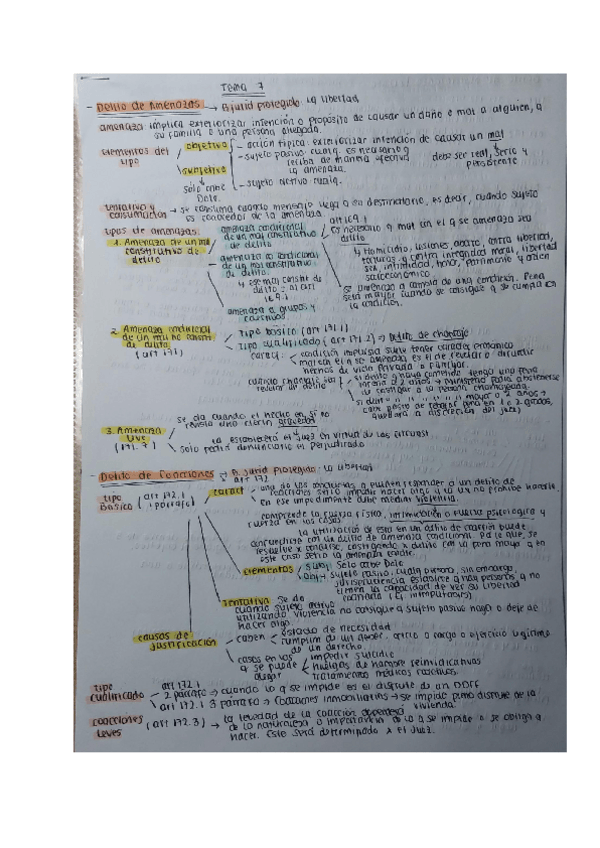 Tema 7
- Delito de Amenazas → B. jurid protegido: la libertad
amenaza implica exteriorizar intención o propósito de causar un daño o mal a alguien, a
su familia o una persona allegada.
elementos del tipo
objetivo
- acción típica: exteriorizar intención de causar un mal
debe ser real, serio y persistente
- sujeto pasivo: cualq. es necesario q
reciba de manera efectiva
la amenaza.
- sujeto activo cualq.
subjetivo
solo cabe
Dolo.
tentativa y consumación → se consuma cuando mensaje llega a en destinatario, es decir, cuando sujeto
es conocedor de la amenaza.
tipos de amenazas:
1. Amenaza de un mal
constitutivo de
delito
amenaza condicional
de un mal constitutivo
de delito
art 169.1
es necesario q mal con el q se amenaza sea
delito
↳ Homicidio, lesiones, aborto, contra libertad,
torturas y contra integridad moral, libertad
sex, intimidad, honor, patrimonio y orden
socioeconómico
se amenaza a cambio de una condición. Pena
será mayor cuando se consigue q se cumpla
la condición.
amenaza no condicional
de un mal constitutivo
de delito.
169.2
amenaza a grupos y
colectivos
2. Amenaza condicional
de un mal no constit
de delito
(art 171)
tipo básico (art 171.1)
tipo cualificado (art 171.2) → Delito de chantaje
caract
condición impuesta suele tener carácter económico
mal con el q se amenaza es el de revelar o difundir
hechos de vida privada o familiar.
cuando chantaje sea
revelar un delito
si delito q haya cometido tenga una pena
inferior a 2 años → ministerio fiscal abstenerse
de castigar a la persona chantajeada.
mayor a 2 años →
cabe posib de rebajar pena en 1 o 2 grados,
quedará a discreción del juez)
3. Amenaza
leve
(171.7)
se da cuando el hecho en sí no
revela una gran gravedad
la establecerá el juez en virtud de las circunst.
solo podrá denunciar el perjudicado
- Delito de Coacciones → B. jurid protegido: la libertad
art 172
tipo
básico
(art 172.1
1 párrafo)
caract
una de las conductas q pueden responder a un delito de
coacciones sería impedir hacer algo q la ley no prohíbe hacerlo,
en ese impedimento debe mediar violencia.
comprende la fuerza física, intimidación o fuerza psicológica y
fuerza en las cosas
la utilización de esta en un delito de coacción puede
confundirse con un delito de amenaza condicional. Pa lo que, se
resuelve x concurso, castigando x delito con la pena mayor q en
este caso sería la amenaza condic.
elementos
subj: solo cabe Dolo
obj: sujeto pasivo, cualq persona, sin embargo,
jurisprudencia establece q hay personas q no
tienen la capacidad de ver su libertad
coartada (Ej. inimputables)
tentativa se da
cuando sujeto activo
utilizando violencia no consigue q sujeto pasivo haga o deje de
hacer algo.
causas de
justificación
caben
estado de necesidad
cumplim de un deber, oficio o cargo o ejercicio legítimo
de un derecho.
casos en los
q se puede
alegar
impedir suicidio
huelgas de hambre reivindicativas
tratamientos médicos coactivos.
tipo
cualificado
art 172.1
2 párrafo → cuando lo q se impide es el disfrute de un DDFF
art 172.1 3 párrafo → Coacciones inmobiliarias → se impide pleno disfrute de la
vivienda.
coacciones
leves
(art 172.3) → la levedad de la coacción dependerá
de la naturaleza o importancia de lo q se impide o se obliga a
hacer. Esto será determinado x el juez.